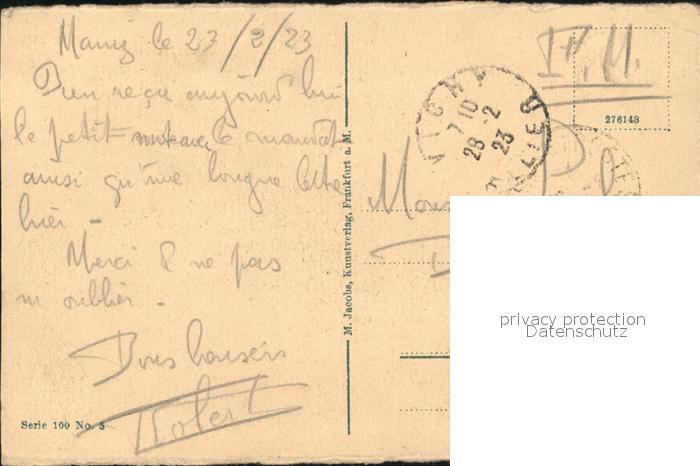 le 23/2/23
Bien reçu aujourd'hui
le petit mot avec le mandat
ainsi qu'une longue lettre
hier -
Merci & ne pas
m'oublier -
Bons baisers
Robert
Serie 100 No. 5
M. Jacobs, Kunstverlag, Frankfurt a. M.
F.M.
276148
VICHY
7 10
28 - 2
23
ALLIER
privacy protection
Datenschutz